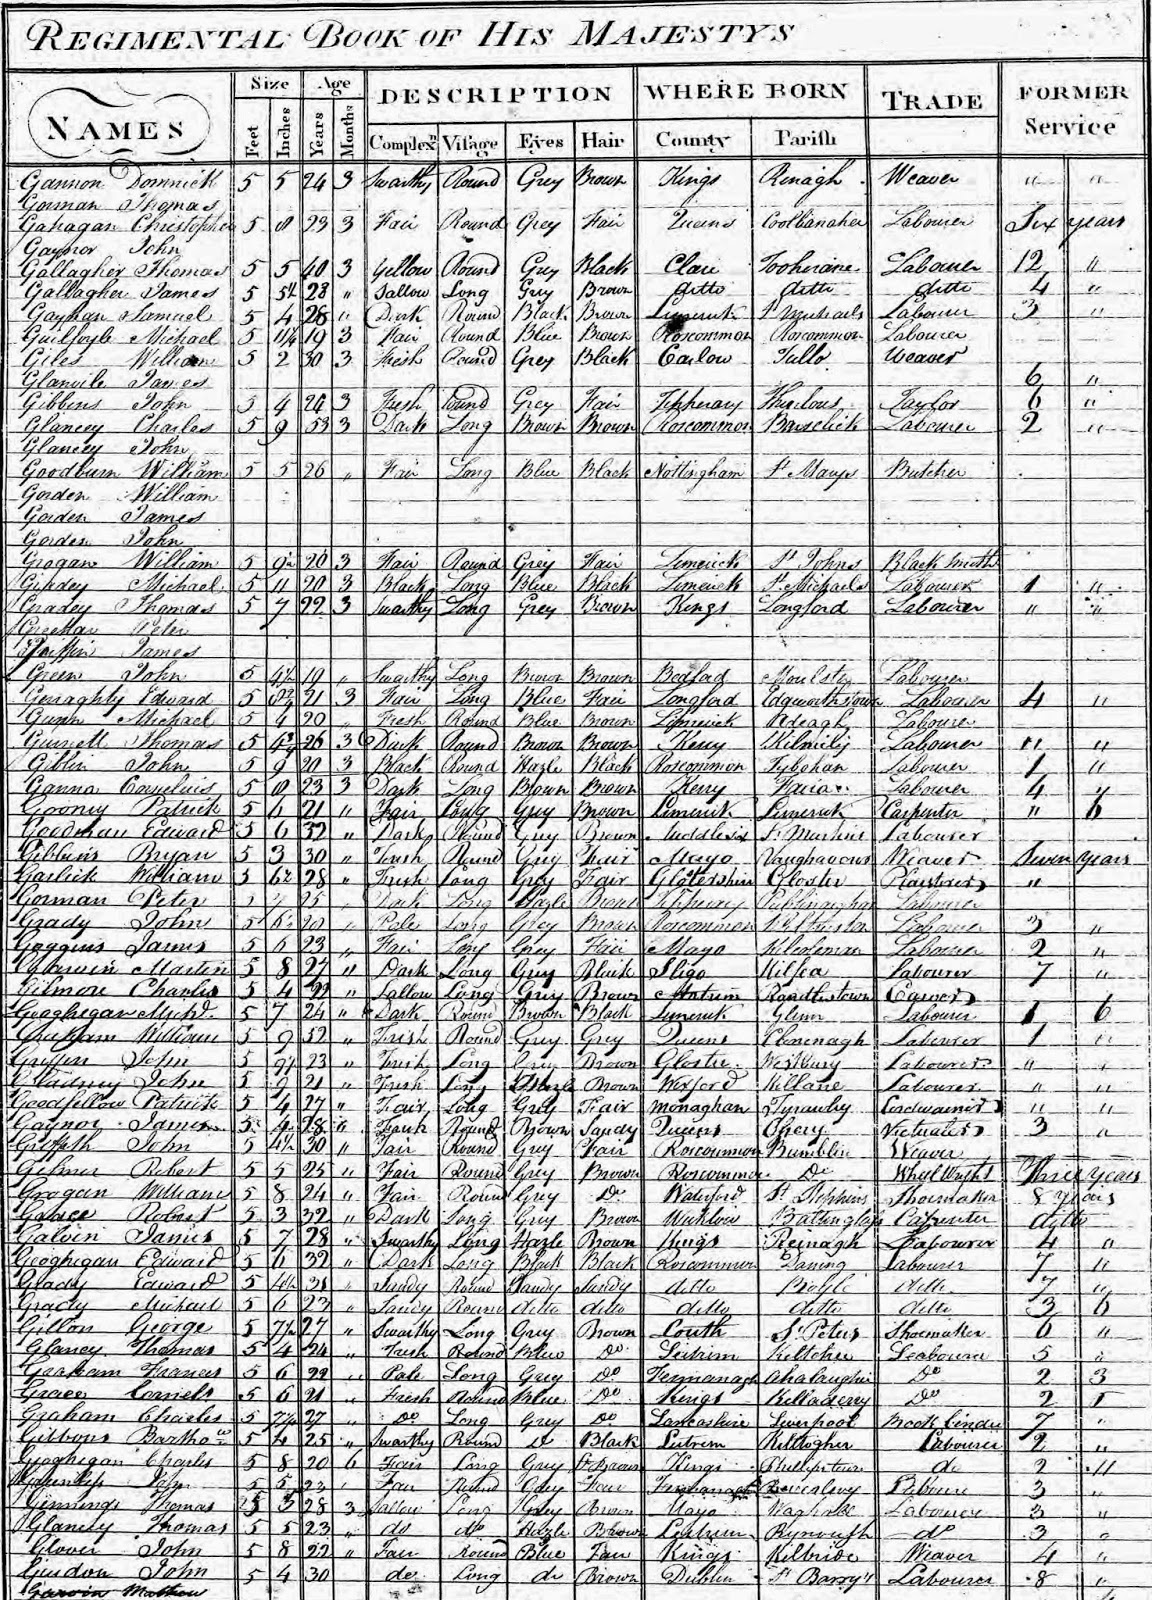 REGIMENTAL BOOK OF HIS MAJESTYS
NAMES Size Age DESCRIPTION WHERE BORN TRADE FORMER Service
Feet Inches Years Months Complexn Visage Eyes Hair County Parish
Gannon Domnick 5 5 24 3 Swarthy Round Grey Brown Kings Renagh Weaver " "
Gorman Thomas
Gahagan Christopher 5 8 23 3 Fair Round Grey Fair Queens Coolbanaher Labourer Six years
Gaynor John
Gallagher Thomas 5 5 40 3 Yellow Round Grey Black Clare Labourer 12 "
Gallagher James 5 5½ 28 " Sallow Long Grey Brown ditto ditto ditto 4 "
Samuel 5 4 28 " Dark Round Black Brown Limerick St Michaels Labourer 3 "
Guilfoyle Michael 5 11¼ 19 3 Fair Round Blue Brown Roscommon Roscommon Labourer
Giles William 5 2 30 3 Fresh Round Grey Black Carlow Tullo Weaver
Glanvile James 6 "
Gibbins John 5 4 24 3 Fresh Round Grey Fair Tipperary Thurlous Taylor 6 "
Glancey Charles 5 9 33 3 Dark Long Brown Brown Roscommon Labourer 2 "
Glancey John
Goodburn William 5 5 26 " Fair Long Blue Black Nottingham St Marys Butcher
Gorden William
Gorden James
Gorden John
Grogan William 5 9½ 20 3 Fair Round Grey Fair Limerick St Johns Black Smith
Gradey Michael 5 11 20 3 Black Long Blue Black Limerick St Michaels Labourer 1 "
Gradey Thomas 5 7 22 3 Swarthy Long Grey Brown Kings Longford Labourer " "
Peter
Griffin James
Green John 5 4½ 19 " Swarthy Long Brown Brown Bedford Labourer
Geraghty Edward 5 21 3 Fair Long Blue Fair Longford Edgworthstown Labourer 4 "
Michael 5 4 20 Fresh Round Blue Brown Limerick Labourer
Thomas 5 4¾ 26 3 Dark Round Brown Brown Kerry Labourer " "
Giblin John 5 9 20 3 Black Round Hazle Black Roscommon Tybohan Labourer 1 "
Ganna Cornelius 5 8 23 3 Dark Long Brown Brown Kerry Labourer 4 "
Gooney Patrick 5 6 21 " Fair Long Grey Brown Limerick Limerick Carpenter " 6
Goodman Edward 5 6 32 " Dark Round Grey Brown Middlesix St Martins Labourer
Gibbins Bryan 5 3 30 " Fresh Round Grey Fair Mayo Weaver Seven years
Garlick William 5 6½ 28 " Fresh Long Grey Fair Glostershire Gloster Plaisterer "
Gorman Peter 5 25 Dark Long Hazle Brown Tipperary Labourer
Grady John 5 6½ 20 " Pale Long Grey Brown Roscommon Labourer 3 "
Goggins James 5 6 23 " Fair Long Grey Fair Mayo Labourer 2 "
Martin 5 8 27 " Dark Long Grey Black Sligo Labourer 7 "
Gilmore Charles 5 4 22 " Sallow Long Grey Brown Antrim Randlestown
Geoghegan Michl. 5 7 24 " Dark Round Brown Black Limerick Glinn Labourer 1 6
William 5 9 32 " Fresh Round Grey Grey Queens Clonenagh Labourer 1 "
John 5 9½ 23 " Fresh Long Grey Brown Gloster Westbury Labourer " "
Gladney John 5 9 21 " Fresh Long Hazle Brown Wexford Killane Labourer " "
Goodfellow Patrick 5 4 27 " Fair Long Grey Fair Monaghan Cordwainer " "
Gaynor James 5 4 28 " Round Brown Sandy Queens Victualer 3 "
Griffith John 5 4½ 30 " Fair Round Grey Fair Roscommon Bumblin Weaver
Gilmer Robert 5 5 25 " Fair Round Grey Brown Roscommon Do Wheel Wright Three years
Grogan William 5 8 24 " Fair Round Grey Do Waterford St Stephens Shoemaker 8 years
Grace Robert 5 3 32 " Dark Long Grey Brown Wicklow Baltinglass Carpenter ditto
Galvin James 5 7 28 " Swarthy Long Hazle Brown Kings Reinagh Labourer 4 "
Geoghegan Edward 5 6 32 " Dark Long Black Black Roscommon Labourer 7 "
Grady Edward 5 4½ 21 " Sandy Round Sandy Sandy ditto Boyle ditto 7 "
Grady Michael 5 6 23 " Sandy Round ditto ditto ditto ditto ditto 3 6
Gillon George 5 7½ 27 " Swarthy Long Grey Brown Louth St Peters Shoemaker 6 "
Glancy Thomas 5 4 24 " Fresh Round Blue Do Leitrim Labourer 5 "
Graham Francis 5 6 22 " Pale Long Grey Do Fermanagh Do 2 3
Grace Cornels 5 6 21 " Fresh Round Blue Do Kings Do 2 5
Graham Charles 5 7½ 27 " Do Long Grey Do Lancashire Liverpool Book binder 7 "
Gibbons Bartho 5 4 25 " Swarthy Round do Black Leitrim Labourer 2 "
Geoghegan Charles 5 8 20 6 Fair Long Grey Dk Brown Kings Phillipstown do 2 11
John 5 5 23 " Fair Round Grey Fair Fermanagh Labourer 3 "
Ginnings Thomas 5 3 28 3 Sallow Long Grey Brown Mayo Labourer 3 "
Glancey Thomas 5 5 23 " do do Hazle Brown Leitrim do 3 "
Glover John 5 8 22 " Fair Round Blue Fair Kings Kilbride Weaver 4 "
John 5 4 30 do Long do Brown Dublin St Barry's Labourer 8 "
Garvin Mathew